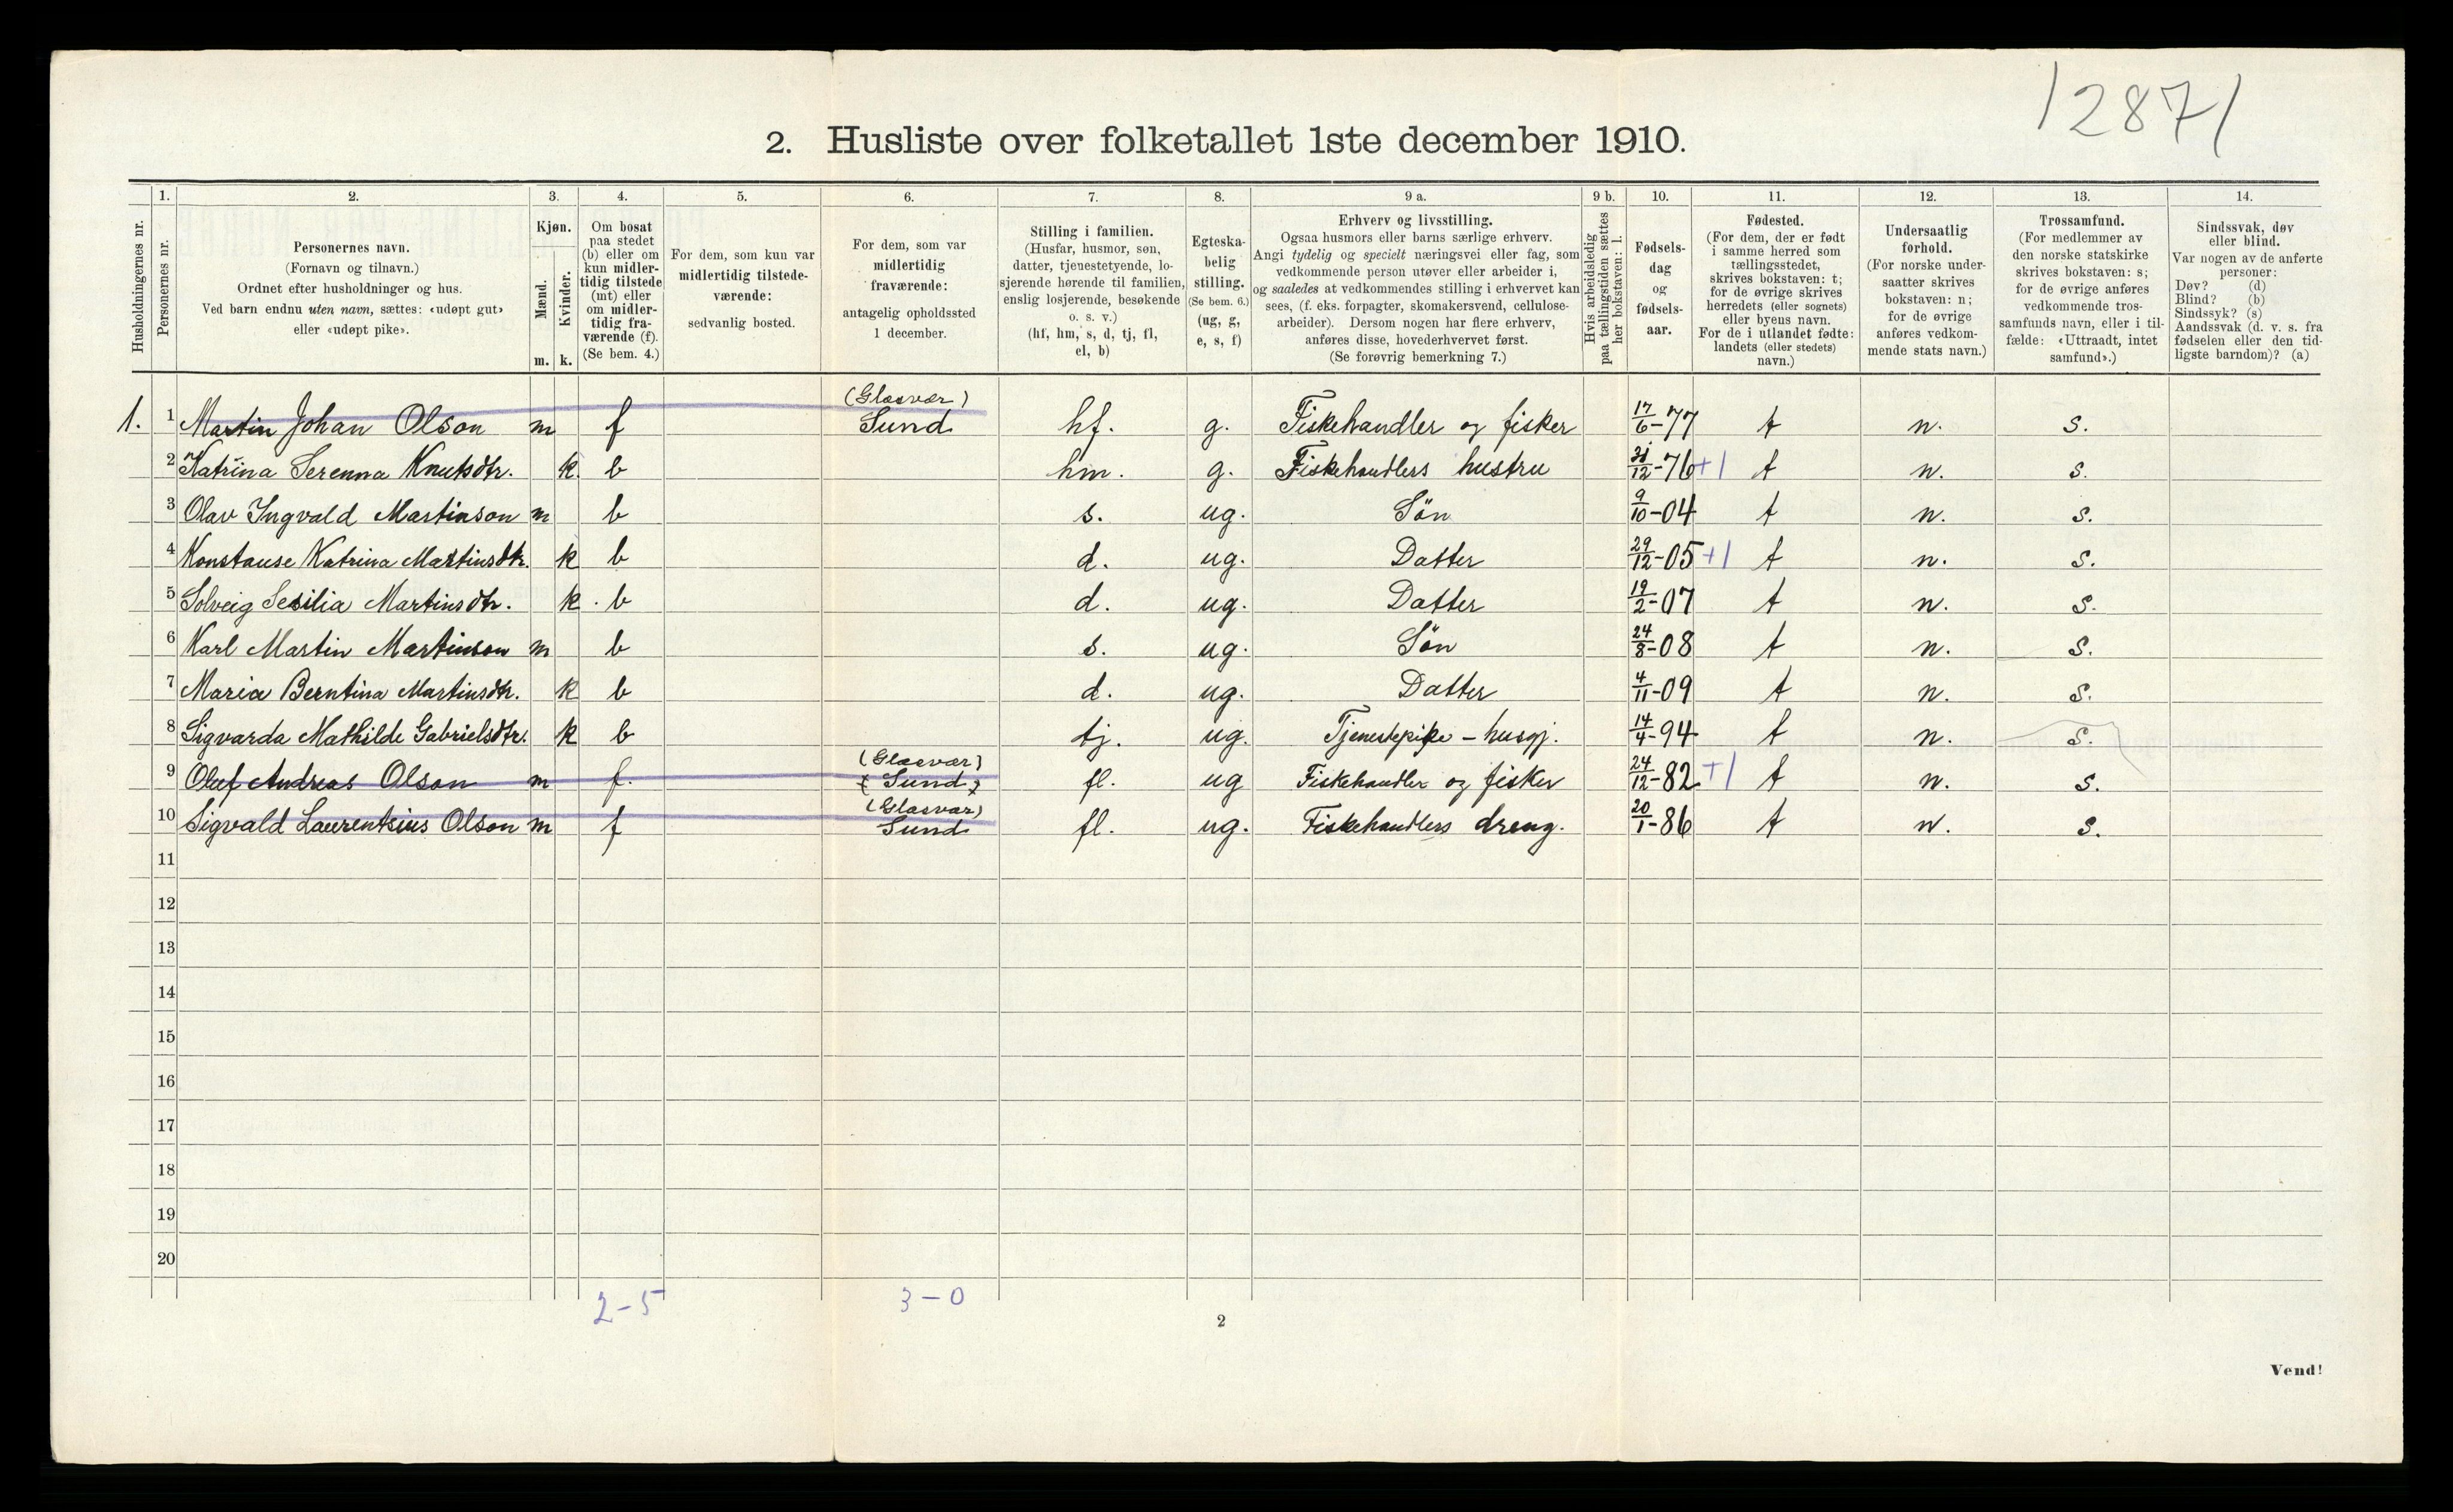 /287/
2. Husliste over folketallet 1ste december 1910.
Husholdningernes nr.
1.
Personernes nr.
2.
Personernes navn.
(Fornavn og tilnavn.)
Ordnet efter husholdninger og hus.
Ved barn endnu uten navn, sættes: «udøpt gut»
eller «udøpt pike».
3.
Kjøn.
Mænd.
Kvinder.
m. k.
4.
Om bosat
paa stedet
(b) eller om
kun midler-
tidig tilstede
(mt) eller
om midler-
tidig fra-
værende (f).
(Se bem. 4.)
5.
For dem, som kun var
midlertidig tilstede-
værende:
sedvanlig bosted.
6.
For dem, som var
midlertidig
fraværende:
antagelig opholdssted
1 december.
7.
Stilling i familien.
(Husfar, husmor, søn,
datter, tjenestetyende, lo-
sjerende hørende til familien,
enslig losjerende, besøkende
o. s. v.)
(hf, hm, s, d, tj, fl,
el, b)
8.
Egteska-
belig
stilling.
(Se bem. 6.)
(ug, g,
e, s, f)
9 a.
Erhverv og livsstilling.
Ogsaa husmors eller barns særlige erhverv.
Angi tydelig og specielt næringsvei eller fag, som
vedkommende person utøver eller arbeider i,
og saaledes at vedkommendes stilling i erhvervet kan
sees, (f. eks. forpagter, skomakersvend, cellulose-
arbeider). Dersom nogen har flere erhverv,
anføres disse, hovederhvervet først.
(Se forøvrig bemerkning 7.)
9 b.
Hvis arbeidsledig
paa tællingstiden sættes
her bokstaven: l.
10.
Fødsels-
dag
og
fødsels-
aar.
11.
Fødested.
(For dem, der er født
i samme herred som
tællingsstedet,
skrives bokstaven: t;
for de øvrige skrives
herredets (eller sognets)
eller byens navn.
For de i utlandet fødte:
landets (eller stedets)
navn.)
12.
Undersaatlig
forhold.
(For norske under-
saatter skrives
bokstaven: n;
for de øvrige
anføres vedkom-
mende stats navn.)
13.
Trossamfund.
(For medlemmer av
den norske statskirke
skrives bokstaven: s;
for de øvrige anføres
vedkommende tros-
samfunds navn, eller i til-
fælde: «Uttraadt, intet
samfund».)
14.
Sindssvak, døv
eller blind.
Var nogen av de anførte
personer:
Døv? (d)
Blind? (b)
Sindssyk? (s)
Aandssvak (d. v. s. fra
fødselen eller den tid-
ligste barndom)? (a)
(Glasvær)
1. 1 Martin Johan Olson m f Sund hf. g. Fiskehandler og fisker 17/6-77 t n. s.
2 Katrina Serenna Knutsdtr. k b hm. g. Fiskehandlers hustru 31/12-76 +1 t n. s.
3 Olav Ingvald Martinson m b s. ug. Sön 9/10-04 t n. s.
4 Konstanse Katrina Martinsdtr. k b d. ug. Datter 29/12-05 +1 t n. s.
5 Solveig Sesilia Martinsdtr. k b d. ug. Datter 19/2-07 t n. s.
6 Karl Martin Martinson m b s. ug. Sön 24/8-08 t n. s.
7 Maria Berntina Martinsdtr. k b d. ug. Datter 4/11-09 t n. s.
8 Sigvarda Mathilde Gabrielsdtr. k b tj. ug. Tjenestepike - husgj. 14/4-94 t n. s.
(Glasvær)
9 Oluf Andreas Olson m f. (Sund) fl. ug Fiskehandler og fisker 24/12-82 +1 t n. s.
(Glasvær)
10 Sigvald Laurentsius Olson m f Sund fl. ug. Fiskehandlers dreng. 20/1-86 t n. s.
11
12
13
14
15
16
17
18
19
20
2-5 3-0
2
Vend!